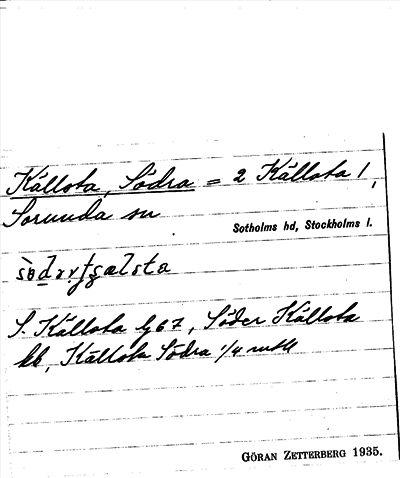 Källsta, Södra = 2 Källsta 1,
Sorunda sn
Sotholms hd, Stockholms l.
S. Källsta Gj 67, Söder Källsta
kk, Källsta Södra 1/4 mtl
GÖRAN ZETTERBERG 1935.